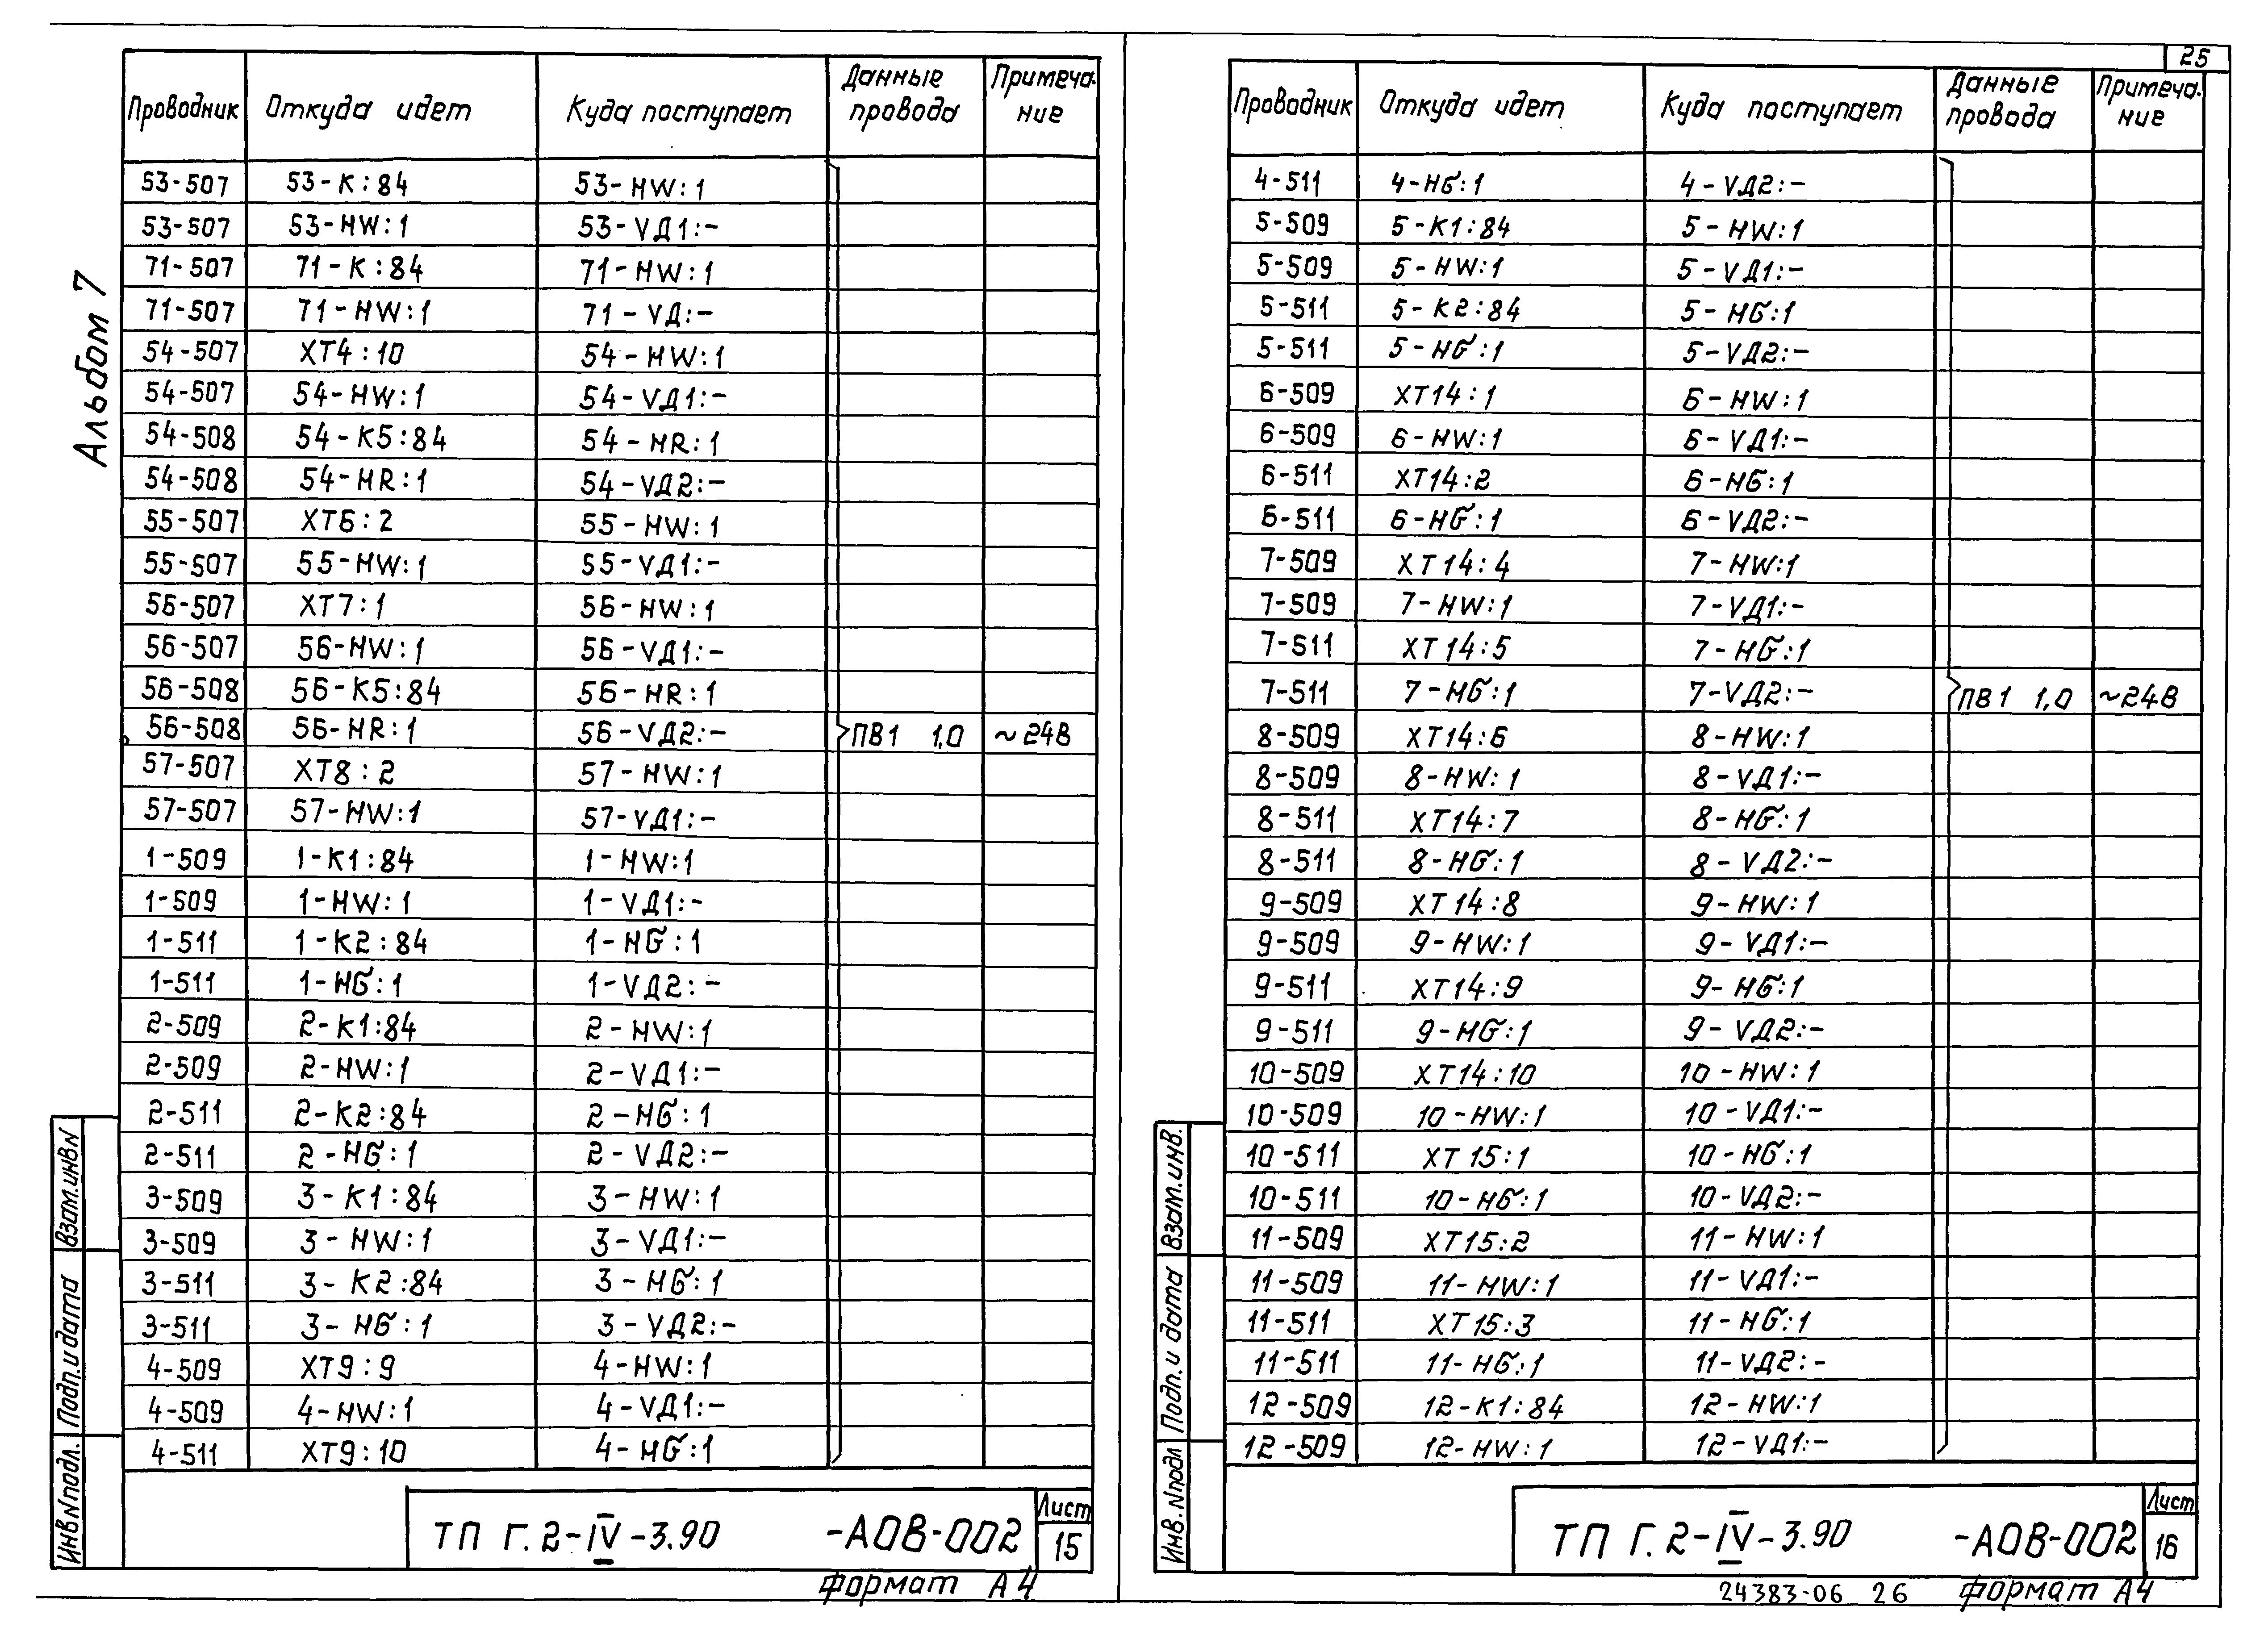 Альбом 7
Проводник Откуда идет Куда поступает Данные провода Примеча-ние
53-507 53-К:84 53-HW:1
53-507 53-HW:1 53-VД1:-
71-507 71-К:84 71-HW:1
71-507 71-HW:1 71-VД:-
54-507 XT4:10 54-HW:1
54-507 54-HW:1 54-VД1:-
54-508 54-К5:84 54-HR:1
54-508 54-HR:1 54-VД2:-
55-507 XT6:2 55-HW:1
55-507 55-HW:1 55-VД1:-
56-507 XT7:1 56-HW:1
56-507 56-HW:1 56-VД1:-
56-508 56-К5:84 56-HR:1
56-508 56-HR:1 56-VД2:- ПВ1 1,0 ~24В
57-507 XT8:2 57-HW:1
57-507 57-HW:1 57-VД1:-
1-509 1-К1:84 1-HW:1
1-509 1-HW:1 1-VД1:-
1-511 1-К2:84 1-HG:1
1-511 1-HG:1 1-VД2:-
2-509 2-К1:84 2-HW:1
2-509 2-HW:1 2-VД1:-
2-511 2-К2:84 2-HG:1
2-511 2-HG:1 2-VД2:-
3-509 3-К1:84 3-HW:1
3-509 3-HW:1 3-VД1:-
3-511 3-К2:84 3-HG:1
3-511 3-HG:1 3-VД2:-
4-509 XT9:9 4-HW:1
4-509 4-HW:1 4-VД1:-
4-511 XT9:10 4-HG:1
Взам.инв.N
Подп.и дата
Инв.N подл.
ТП Г.2-IV-3.90 -АОВ-002
Лист
15
Формат А4
25
Проводник Откуда идет Куда поступает Данные провода Примеча-ние
4-511 4-HG:1 4-VД2:-
5-509 5-К1:84 5-HW:1
5-509 5-HW:1 5-VД1:-
5-511 5-К2:84 5-HG:1
5-511 5-HG:1 5-VД2:-
6-509 XT14:1 6-HW:1
6-509 6-HW:1 6-VД1:-
6-511 XT14:2 6-HG:1
6-511 6-HG:1 6-VД2:-
7-509 XT14:4 7-HW:1
7-509 7-HW:1 7-VД1:-
7-511 XT14:5 7-HG:1
7-511 7-HG:1 7-VД2:- ПВ1 1,0 ~24В
8-509 XT14:6 8-HW:1
8-509 8-HW:1 8-VД1:-
8-511 XT14:7 8-HG:1
8-511 8-HG:1 8-VД2:-
9-509 XT14:8 9-HW:1
9-509 9-HW:1 9-VД1:-
9-511 XT14:9 9-HG:1
9-511 9-HG:1 9-VД2:-
10-509 XT14:10 10-HW:1
10-509 10-HW:1 10-VД1:-
10-511 XT15:1 10-HG:1
10-511 10-HG:1 10-VД2:-
11-509 XT15:2 11-HW:1
11-509 11-HW:1 11-VД1:-
11-511 XT15:3 11-HG:1
11-511 11-HG:1 11-VД2:-
12-509 12-К1:84 12-HW:1
12-509 12-HW:1 12-VД1:-
Взам.инв.
Подп.и дата
Инв.N подл
ТП Г.2-IV-3.90 -АОВ-002
Лист
16
24383-06 26 Формат А4